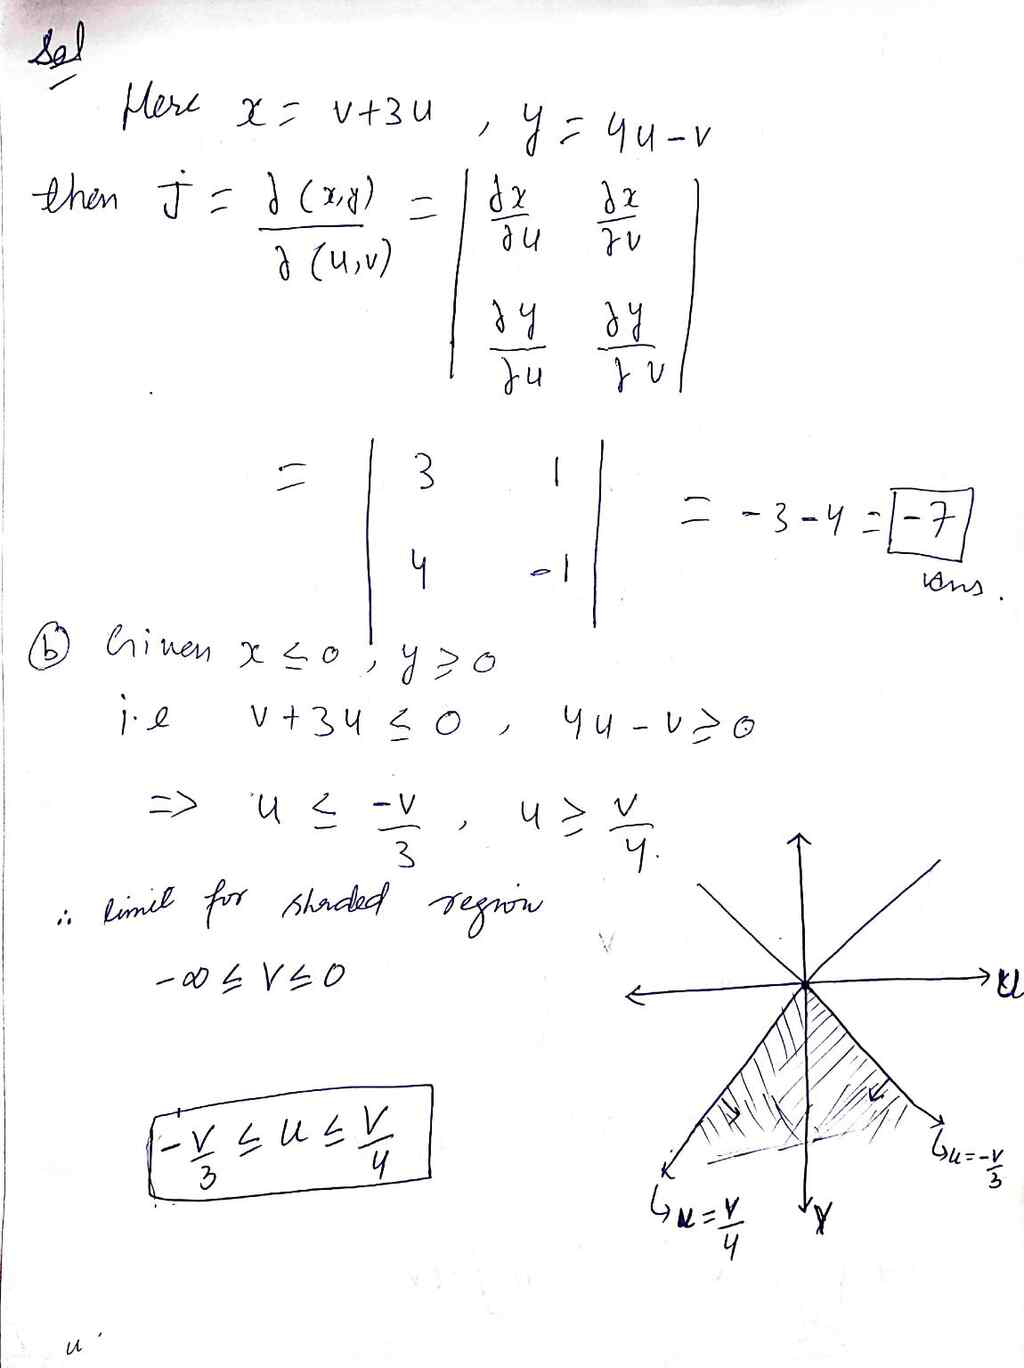 Sol
Here x = v+3u , y = 4u-v
then J = ∂(x,y)/∂(u,v) = | ∂x/∂u ∂x/∂v |
| ∂y/∂u ∂y/∂v |
= | 3 1 |
| 4 -1 | = -3-4 = -7
Ans.
(b) Given x ≤ 0 , y ≥ 0
i.e v+3u ≤ 0 , 4u-v ≥ 0
=> u ≤ -v/3 , u ≥ v/4.
∴ limit for shaded region
-∞ ≤ v ≤ 0
u
-v/3 ≤ u ≤ v/4
u=-v/3
u=v/4
v
u